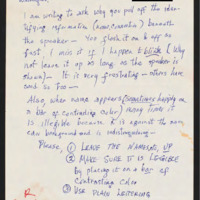 I am writing to ask why you put up the iden-
tifying information (name, location) beneath
the speaker — You flash it on & off so
fast I miss it if I happen to blink (Why
not leave it up as long as the speaker is
shown) — It is very frustrating — others here
and so too —
Also when name appears (sometimes happily on
a bar of contrasting color) many times it
is illegible because it is against the same
background and is indistinguishable —
Please, ① LEAVE THE NAMES UP
② MAKE SURE IT IS LEGIBLE
by placing it on a bar of
contrasting color
③ USE PLAIN LETTERING